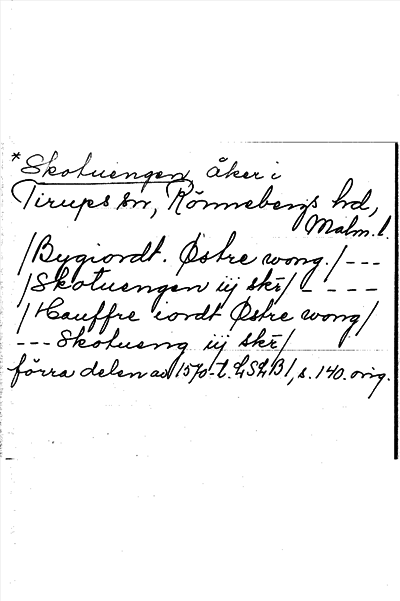 *Skotuengen, åker i
Tirups sn, Rönnebergs hd,
Malm. l.
/Bygiordt. Østre wong./ ---
/Skotuengen iij skr/ - - - -
/Hauffre iordt Østre wong/
--- Skotueng iij skr/
förra delen av 1570-t. LSLB1, s. 140. orig.